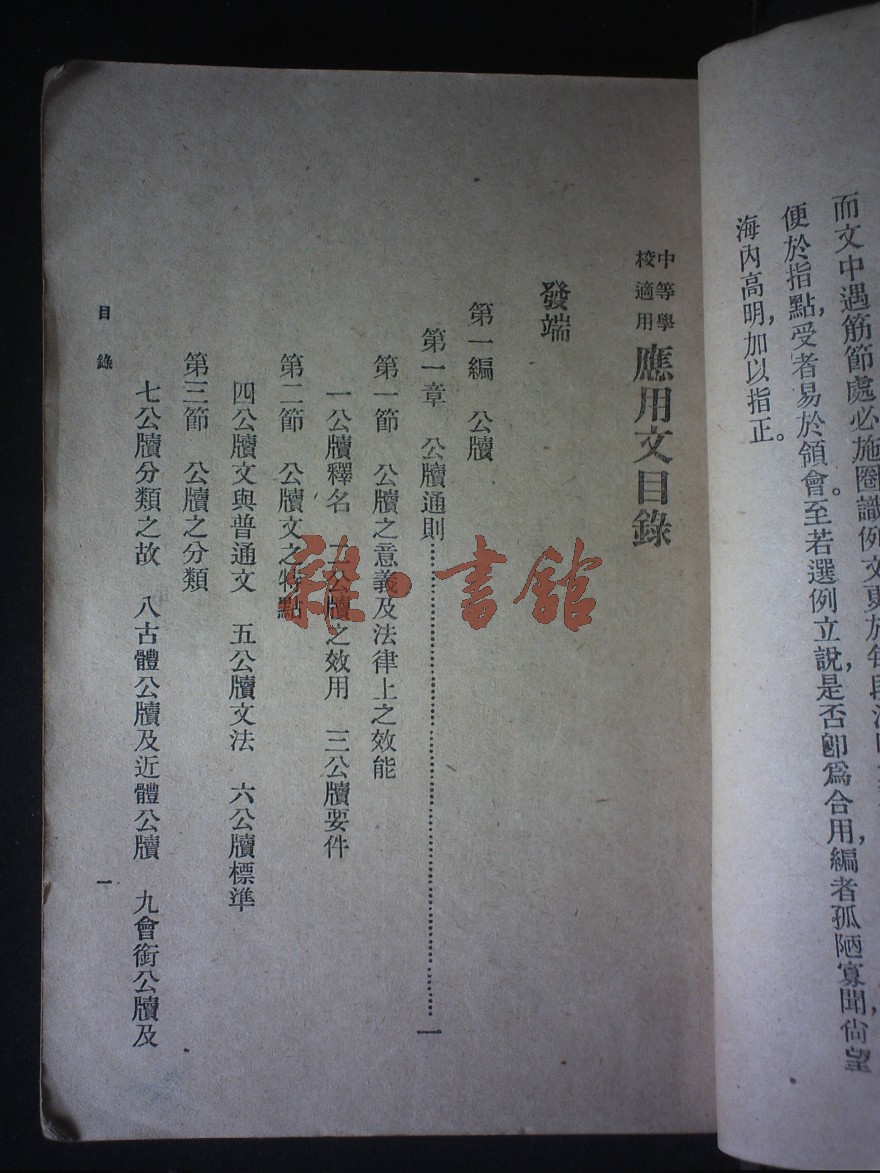 而文中遇筋節處必施圈識例文更於每段
便於指點，受者易於領會。至若選例立說，是否卽爲合用，編者孤陋寡聞尙望
海內高明，加以指正。
中等學校適用
應用文目錄
發端
第一編　公牘
第一章　公牘通則……一
第一節　公牘之意義及法律上之效能
一公牘釋名　二公牘之效用　三公牘要件
第二節　公牘文之特點
四公牘文與普通文　五公牘文法　六公牘標準
第三節　公牘之分類
七公牘分類之故　八古體公牘及近體公牘　九會銜公牘及
目錄
一
雜·書館